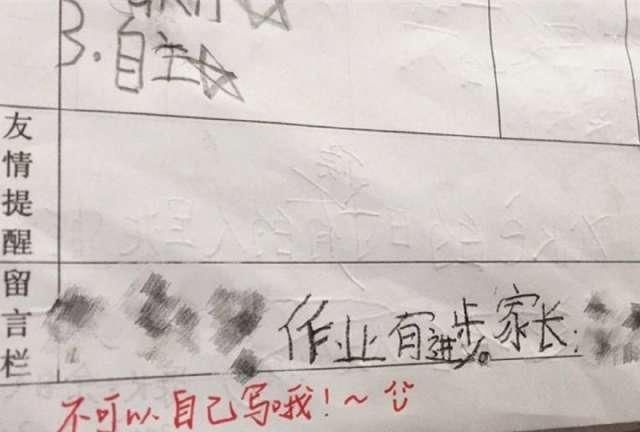 3.自主☆
友情提醒
留言栏
作业有进步。家长：
不可以自己写哦！~